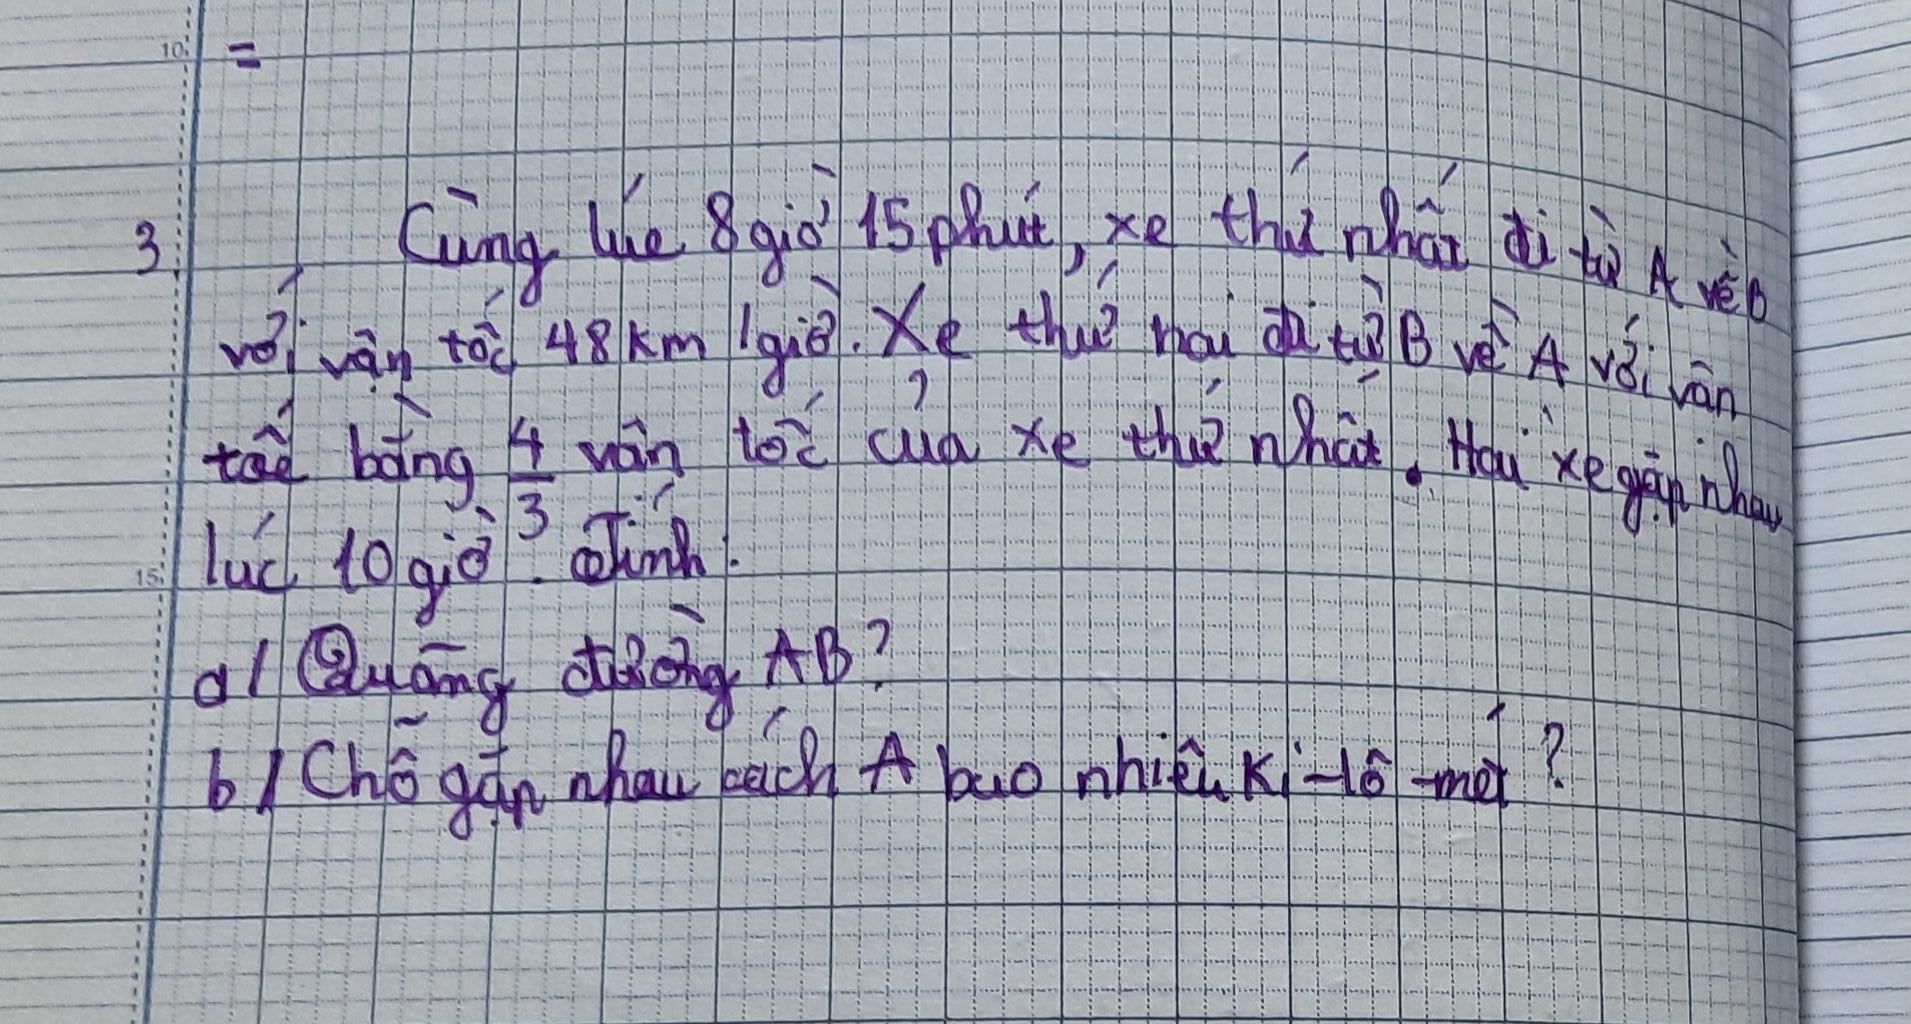 10
=
3. Cùng lúc 8 giờ 15 phút, xe thứ nhất đi từ A về B
với vận tốc 48 km/giờ. Xe thứ hai đi từ B về A với vân
tốc bằng 4/3 vận tốc của xe thứ nhất. Hai xe gặp nhau
lúc 10 giờ. Tính:
15
a/ Quãng đường AB?
b/ Chỗ gặp nhau cách A bao nhiêu ki-lô-mét?